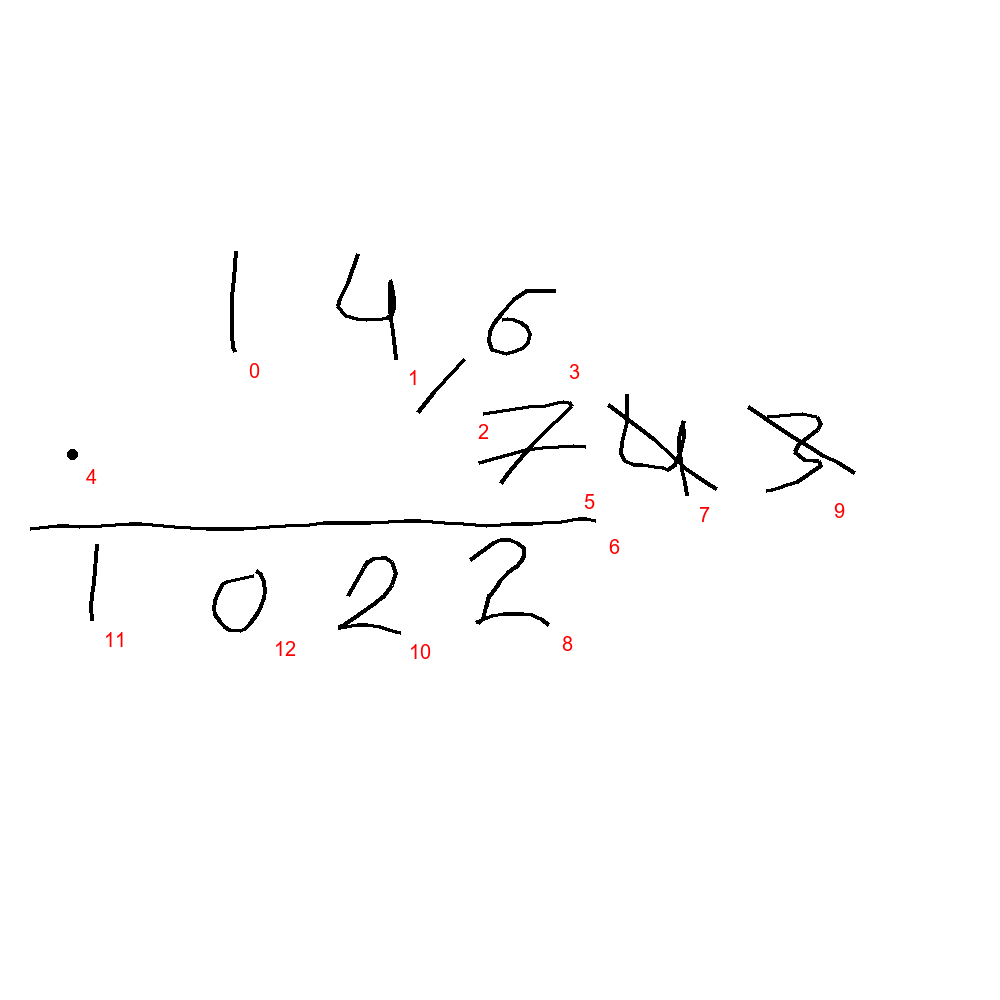 1 4 , 6
0 1 3
· 7 4 3
4 2 5 7 9
6
1 0 2 2
11 12 10 8